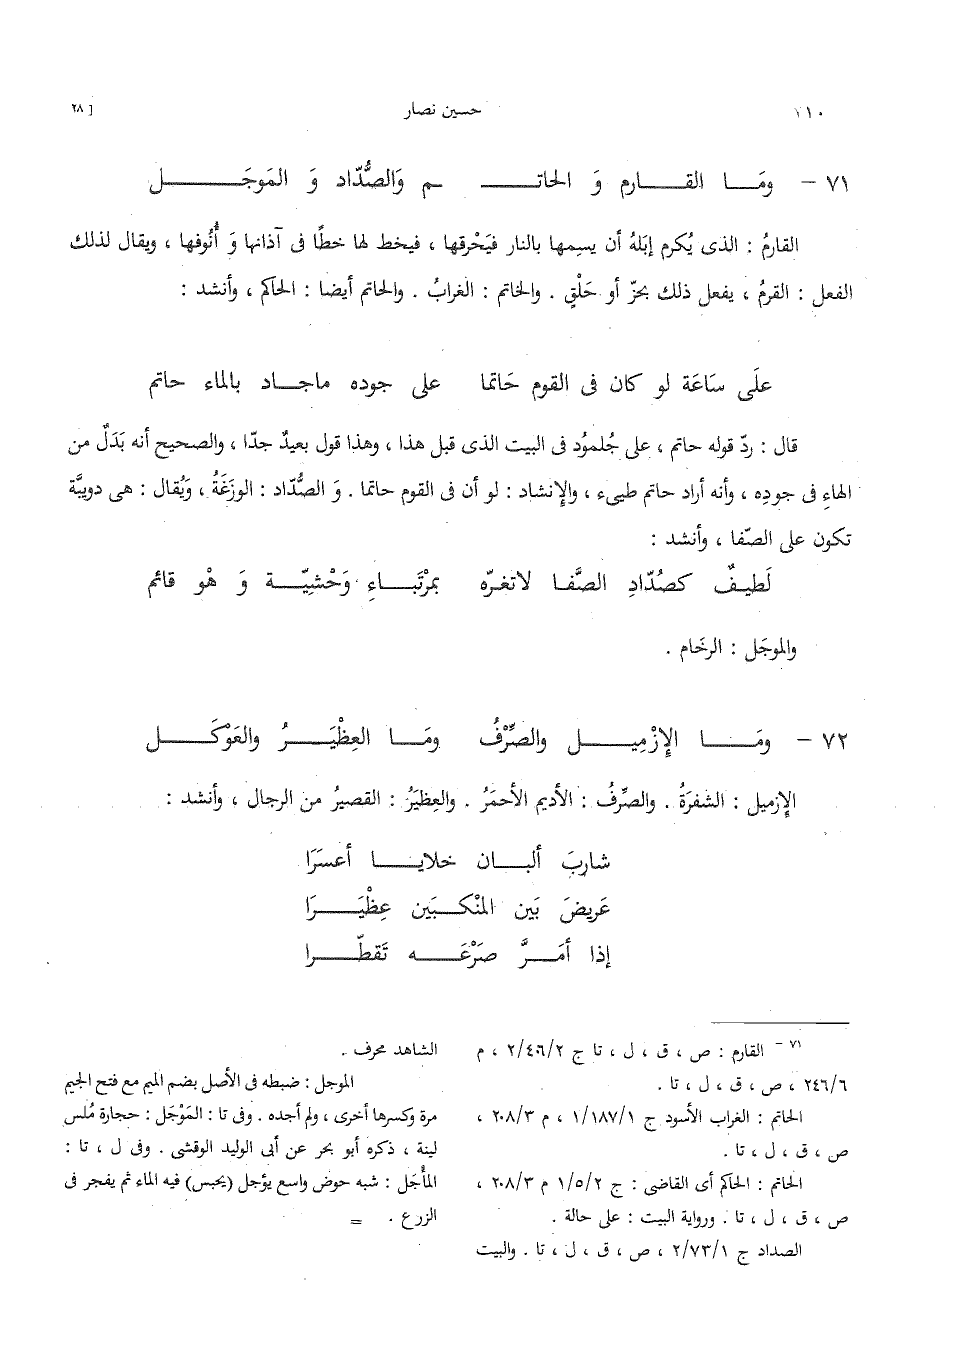 ١١٠ حسين نصار [ ٢٨
٧١ – ومَـا القـارم وَ الحاتـم والصُّدّاد وَ المَوجَـل
القارمُ : الذى يُكرم إبَلهُ أن يسِمها بالنار فيَحْرقها ، فيخط لها خطًا فى آذانها وَ أُنُوفها ، ويقال لذلك
الفعل : القرمُ ، يفعل ذلك بحَزّ أو حَلْقٍ . والحاتم : الغرابُ . والحاتم أيضا : الحاكم ، وأنشد :
علَى سَاعَة لو كان فى القوم حَاتما على جوده ماجـاد بالماء حاتم
قال : ردّ قوله حاتم ، على جُلمُود فى البيت الذى قبل هذا ، وهذا قول بعيدٌ جدّا ، والصحيح أنه بَدَلٌ من
الهاءِ فى جودِه ، وأنه أراد حاتم طيىء ، والإنشاد : لو أن فى القوم حاتما . وَ الصُّدّاد : الوزَغَةُ ، وَيُقال : هى دويبَّة
تكون على الصّفا ، وأنشد :
لَطيـفٌ كصُدّادِ الصَّفـا لاتغـرّه بمرْتَبـاءِ وَحْشيّـة وَ هْو قائم
والموجَل : الرخَام .
٧٢ – ومَـا الإزْميـل والصِّرْفُ ومَـا العِظْيَـرُ والعَوْكَـل
الإزميل : الشفرَةُ . والصِّرفُ : الأديم الأحمَرُ . والعِظيَرُ : القصيرُ من الرجال ، وأنشد :
شاربَ ألبـان خلايـا أعسَرَا
عَريضَ بَين المنْكـبَين عِظْيَـرَا
إذا أمَـرَّ صَرْعَـه تَقطّـرا
٧١ – القارم : ص ، ق ، ل ، تا ج ٢/٤٠٦/٢ ، م
٢٤٦/٦ ، ص ، ق ، ل ، تا .
الحاتم : الغراب الأسود ج ١/١٨٧/١ ، م ٢٠٨/٣ ،
ص ، ق ، ل ، تا .
الحاتم : الحاكم أى القاضى : ج ١/٥/٢ م ٢٠٨/٣ ،
ص ، ق ، ل ، تا . ورواية البيت : على حالة .
الصداد ج ٢/٧٣/١ ، ص ، ق ، ل ، تا . والبيت
الشاهد محرف .
الموجل : ضبطه فى الأصل بضم الميم مع فتح الجيم
مرة وكسرها أخرى ، ولم أجده . وفى تا : المَوْجَل : حجارة مُلس
لينة ، ذكره أبو بحر عن أبى الوليد الوقشى . وفى ل ، تا :
المأْجَل : شبه حوض واسع يؤجل (يحبس) فيه الماء ثم يفجر فى
الزرع . =